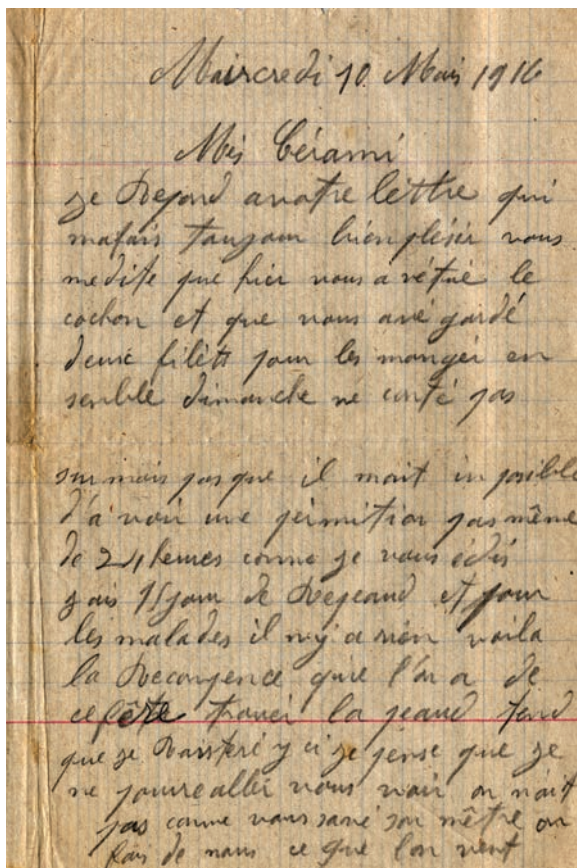 Maircredi 10 Mais 1916
Mes bérami
ge Repond avotre lèttre qui
mafais toujour bien plésir vous
medite que hier vous avétué le
cochon et que vous avé gardé
deux filèts pour les manger en
senble dimanche ne conté pas
sur mois pas que il mait in posible
d'a voir une pérmition pas même
de 24 heures conne ge vous é dis
gais 15 jour de Repeaud et pour
les malades il ny a rien voila
la Reconpence que l'on a de
ce fêtre trouer la peaud tend
que ge Raisteré y ci ge pense que ge
ne pourre aller vous voir on nait
pas conne vous savé son mêtre on
fais de nous ce que l'on veut